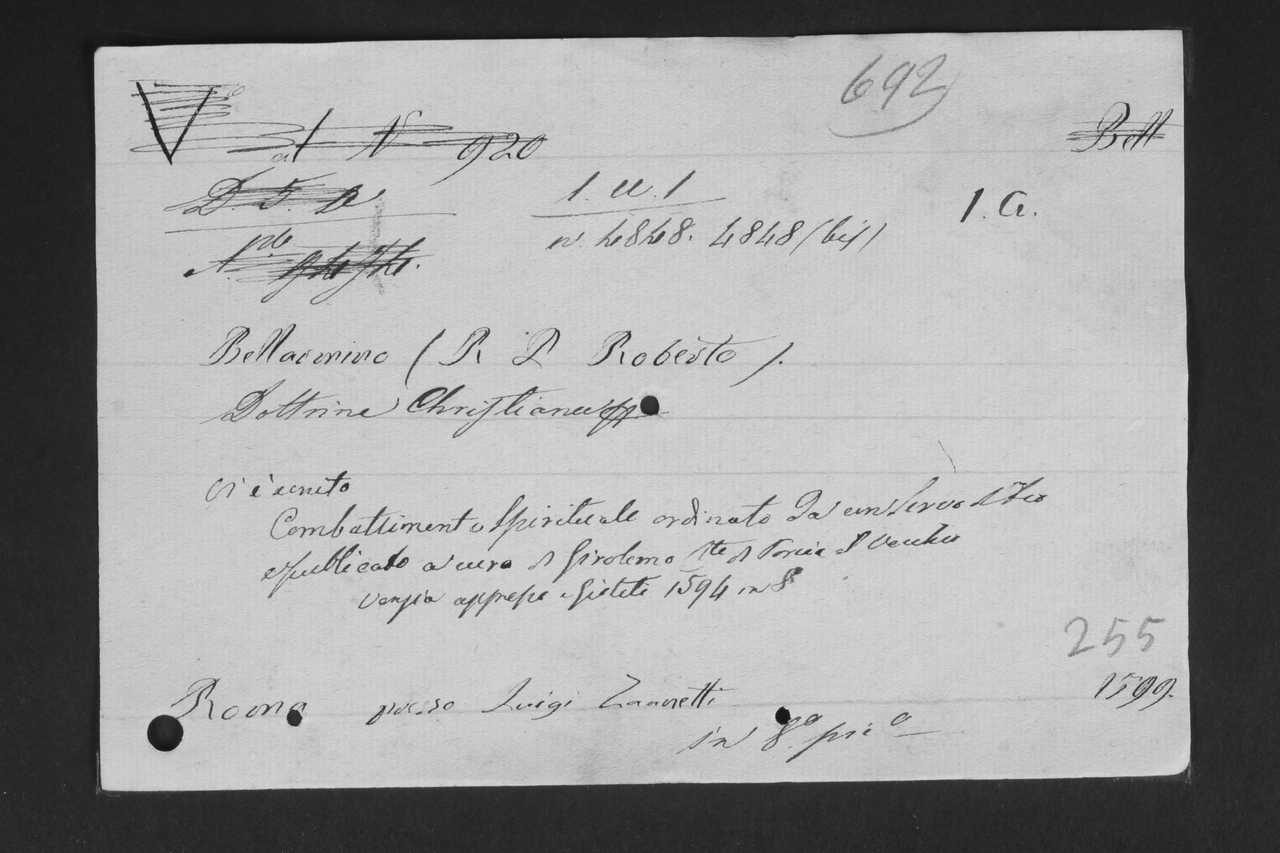 692
Bell
al N 920
1. U. 1
1. G.
n. 4848. 4848 (bis)
Bellarmino ( R P Roberto ).
Dottrina Christiana
Vi è unito
Combattimento Spirituale ordinato da un servo d'Iddio
e publicato a cura di Girolamo Cte di Porcia il Vecchio
Venezia appresso Gioliti 1594 in 8°
255
1599.
Roma presso Luigi Zannetti
in 8.° pic°